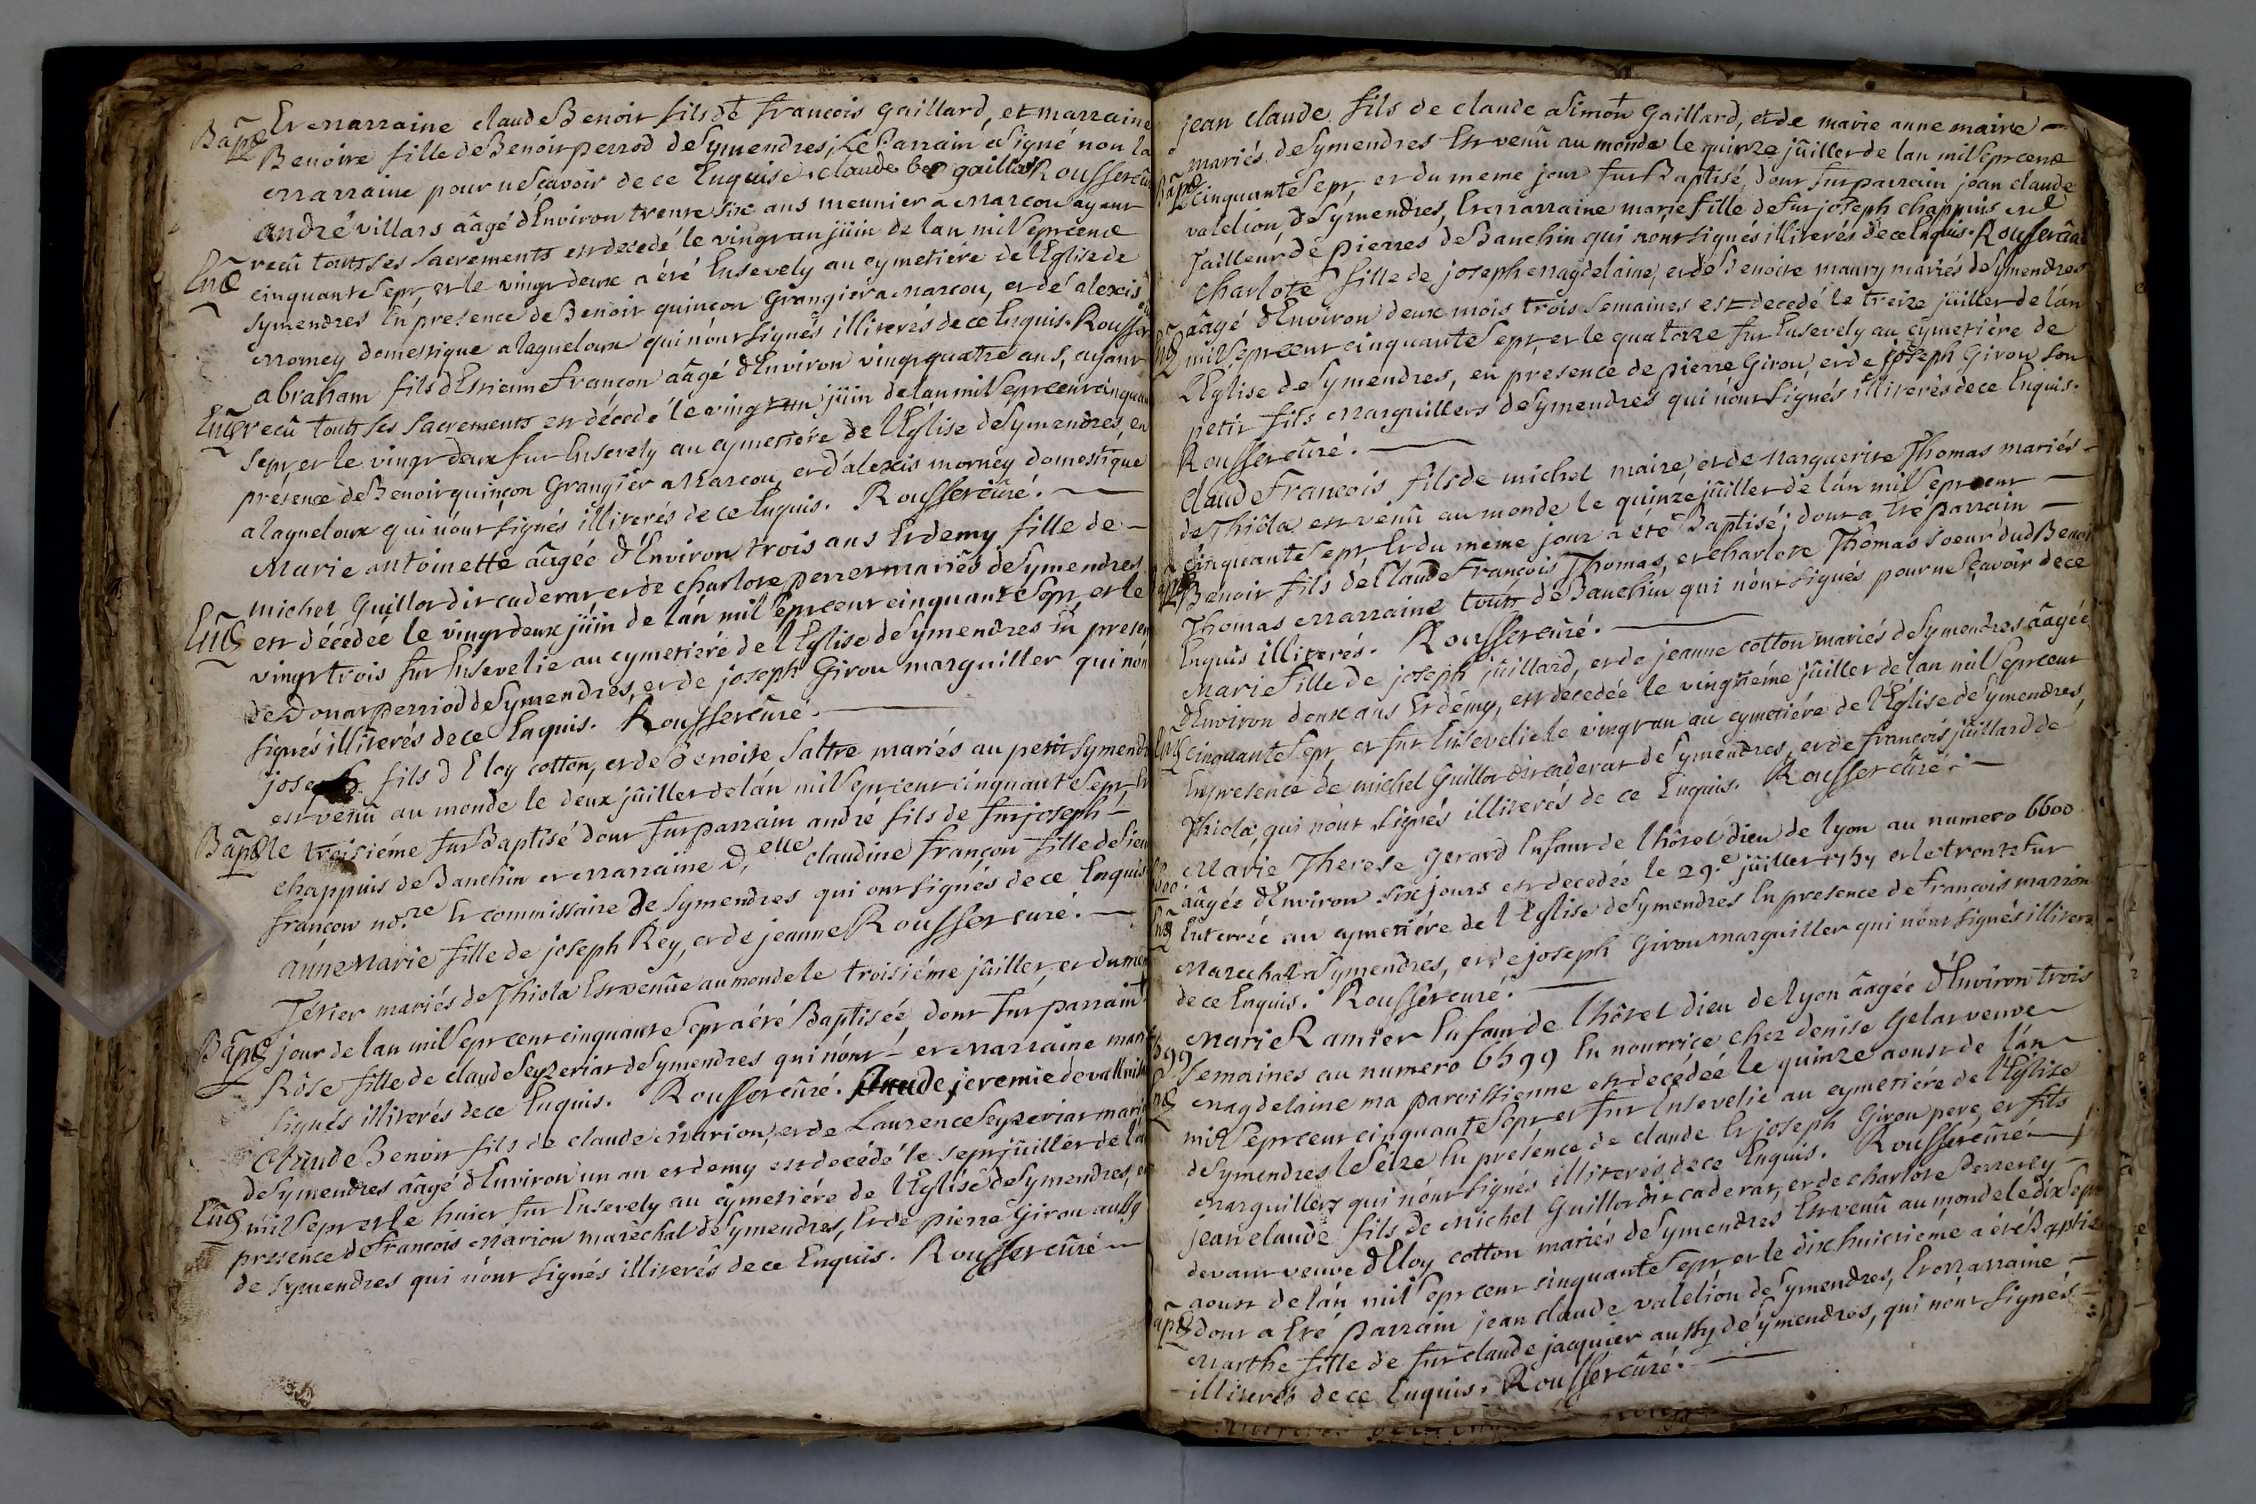 Bapt Et marraine claude Benoit fils de francois gaillard, et marraine
Benoite fille de Benoit perrod de Symendres; Le Parrain a signé non la
marraine pour ne scavoir de ce Enquise. claude be gaillard Rousset curé
andré villars aâgé d'Environ trente six ans meunier a marcou ayant
Ent reçû touts ses sacrements est decedé le vingt un jüin de lan mil sept cent
cinquante sept, et le vingt deux a été Ensevely au cymetiére de l'Eglise de
symendres En presence de Benoit quinçon Grangier a marcou, et de alexis
morney domestique a lagueloux qui nont signés illiterés de ce Enquis. Rousset
abraham fils d'Estienne françon aâgé d'Environ vingt quatre ans, ayant
Ent reçû touts ses sacrements est décedé le vingt un jüin de lan mil sept cent cinquan
sept, et le vingt deux fut Ensevely au cymetiére de l'Église de Symendres, en
présence de Benoit quinçon Grangier a Marcou, et d'alexis morney domestique
a lagueloux qui n'ont signés illiterés de ce Enquis. Rousset curé.
Marie antoinette aâgée d'Environ trois ans Et demy fille de
michel Guillot dit caderat et de charlote perret mariés de Symendres
Ent est décedeé le vingt deux jüin de lán mil sept cent cinquante sept, et le
vingt trois fut Ensevelie au cymetiéré de l'Eglise de Symendres En presen
de Donat perriod de Symendres, et de joseph Girou marguiller qui nont
signés illiterés de ce Enquis. Rousset curé.
joseph fils d'Eloy cotton, et de Benoite Saltre mariés au petit Symendr
est venû au monde le deux jüillet de lán mil sept cent cinquante sept, Et
Bapt le troisiéme fut Baptisé dont fut parrain andré fils de fut joseph
chappuis de Banchin et marraine D.elle claudine françon fille de sieur
françon no.re Et commissaire de Symendres qui ont signés de ce Enquis
Rousset curé.
anne Marie fille de joseph Rey, et de jeanne
Terier mariés de Thiola Est venûe au monde le troisiéme jüillet, et du mem
Bapt jour de lan mil sept cent cinquante sept a été Baptiséé, dont fut parrain
Rôse fille de claude Seyzeriat de Symendres qui n'ont et marraine mari
signés illiterés de ce Enquis. Rousset curé. Claude jeremie de
Claude Benoit fils de claude Marion, et de Laurence Seyzeriat marié
de Symendres aâgé d'Environ un an et demy est decédé le sept jüillet de lan
Ent mil sept et le huict fut Ensevely au cymetiére de l'Eglise de Symendres, en
presence de francois Marion maréchal de Symendres, Et de pierre Girou aussy
de Symendres qui n'ont signés illiterés de ce Enquis. Rousset curé
jean claude fils de claude a Simon Gaillard, et de marie anne maire
mariés de Symendres Est venû au monde le quinze jüillet de lan mil sept cent
Bapt cinquante sept, et du meme jour fut Baptisé, dont fut parrain jean claude
valelion, de Symendres, Et marraine marie fille de fut joseph chappuis
Tailleur de pierres de Banchin qui nont signés illiterés de ce Enquis. Rousset curé
charlote fille de joseph Magdelaine, et de Benoite maury mariés de Symendres
aâgé d'Environ deux mois trois semaines est decedé le treize jüillet de lán
Ent mil sept cent cinquante sept, et le quatorze fut Ensevely au cymetière de
L'Eglise de Symendres, en presence de pierre Girou, et de joseph Girou son
petit fils Marguillers de Symendres qui n'ont signés illiterés de ce Enquis.
Rousset curé.
Claude francois fils de michel maire, et de marguerite Thomas mariés
de Thiola est vénû au monde le quinze jüillet de lán mil sept cent
cinquante sept Et du meme jour a été Baptisé; dont a Eté parrain
Bapt Benoit fils de Claude François Thomas, et charlote Thomas soeur dud Benoit
Thomas marraine touts de Banchin qui n'ont signés pour ne scavoir de ce
Enquis illiterés. Rousset curé.
Marie fille de joseph jüillard, et de jeanne cotton mariés de Symendres aâgée
d'Environ deux ans Et démy, est decedée le vingtiéme jüillet de lan mil sept cent
Ent cinquante sept, et fut Ensevelie le vingt un au cymetiére de l'Eglise de Symendres
En presence de michel Guillot dit caderat de Symendres, et de françois jüillard de
Thiola, qui nont signés illiterés de ce Enquis. Rousset curé.
Marie Therese gerard Enfant de lhôtel dieu de lyon au numero 6600
aâgée d'Environ six jours est decedée le 29.e jüillet 1757 et le trente fut
Ent Enterrée au cymetiére de l'Eglise de Symendres En presence de francois marion
Marechal a Symendres, et de joseph Girou marguiller qui nont signés illiterés
de ce Enquis. Rousset curé.
Marie Ramier Enfant de lhôtel dieu de lyon aâgée d'Environ trois
semaines au numero 6599 En nourrice chez denise Gelas veuve
Ent Magdelaine ma paroissienne est decédéé le quinze aoust de lán
mil sept cent cinquante sept et fut Ensevelie au cymetiére de l'Église
de Symendres le séize En présence de claude Et joseph Girou pere, et fils
Marguillers qui nont signés illiterés de ce Enquis. Rousset curé
jean claude fils de Michel Guillot dit caderat, et de charlote Perret cy
devant veuve d'Eloy cotton mariés de Symendres Est venû au monde le dix sept
aoust de lán mil sept cent cinquante sept, et le dix huictiéme a été Baptisé
Bapt dont a Eté Parrain jean claude valelion de Symendres, Et marraine
Marthe fille de fut claude jacquier aussy de Symendres, qui nont signés
illiterés de ce Enquis. Rousset curé.